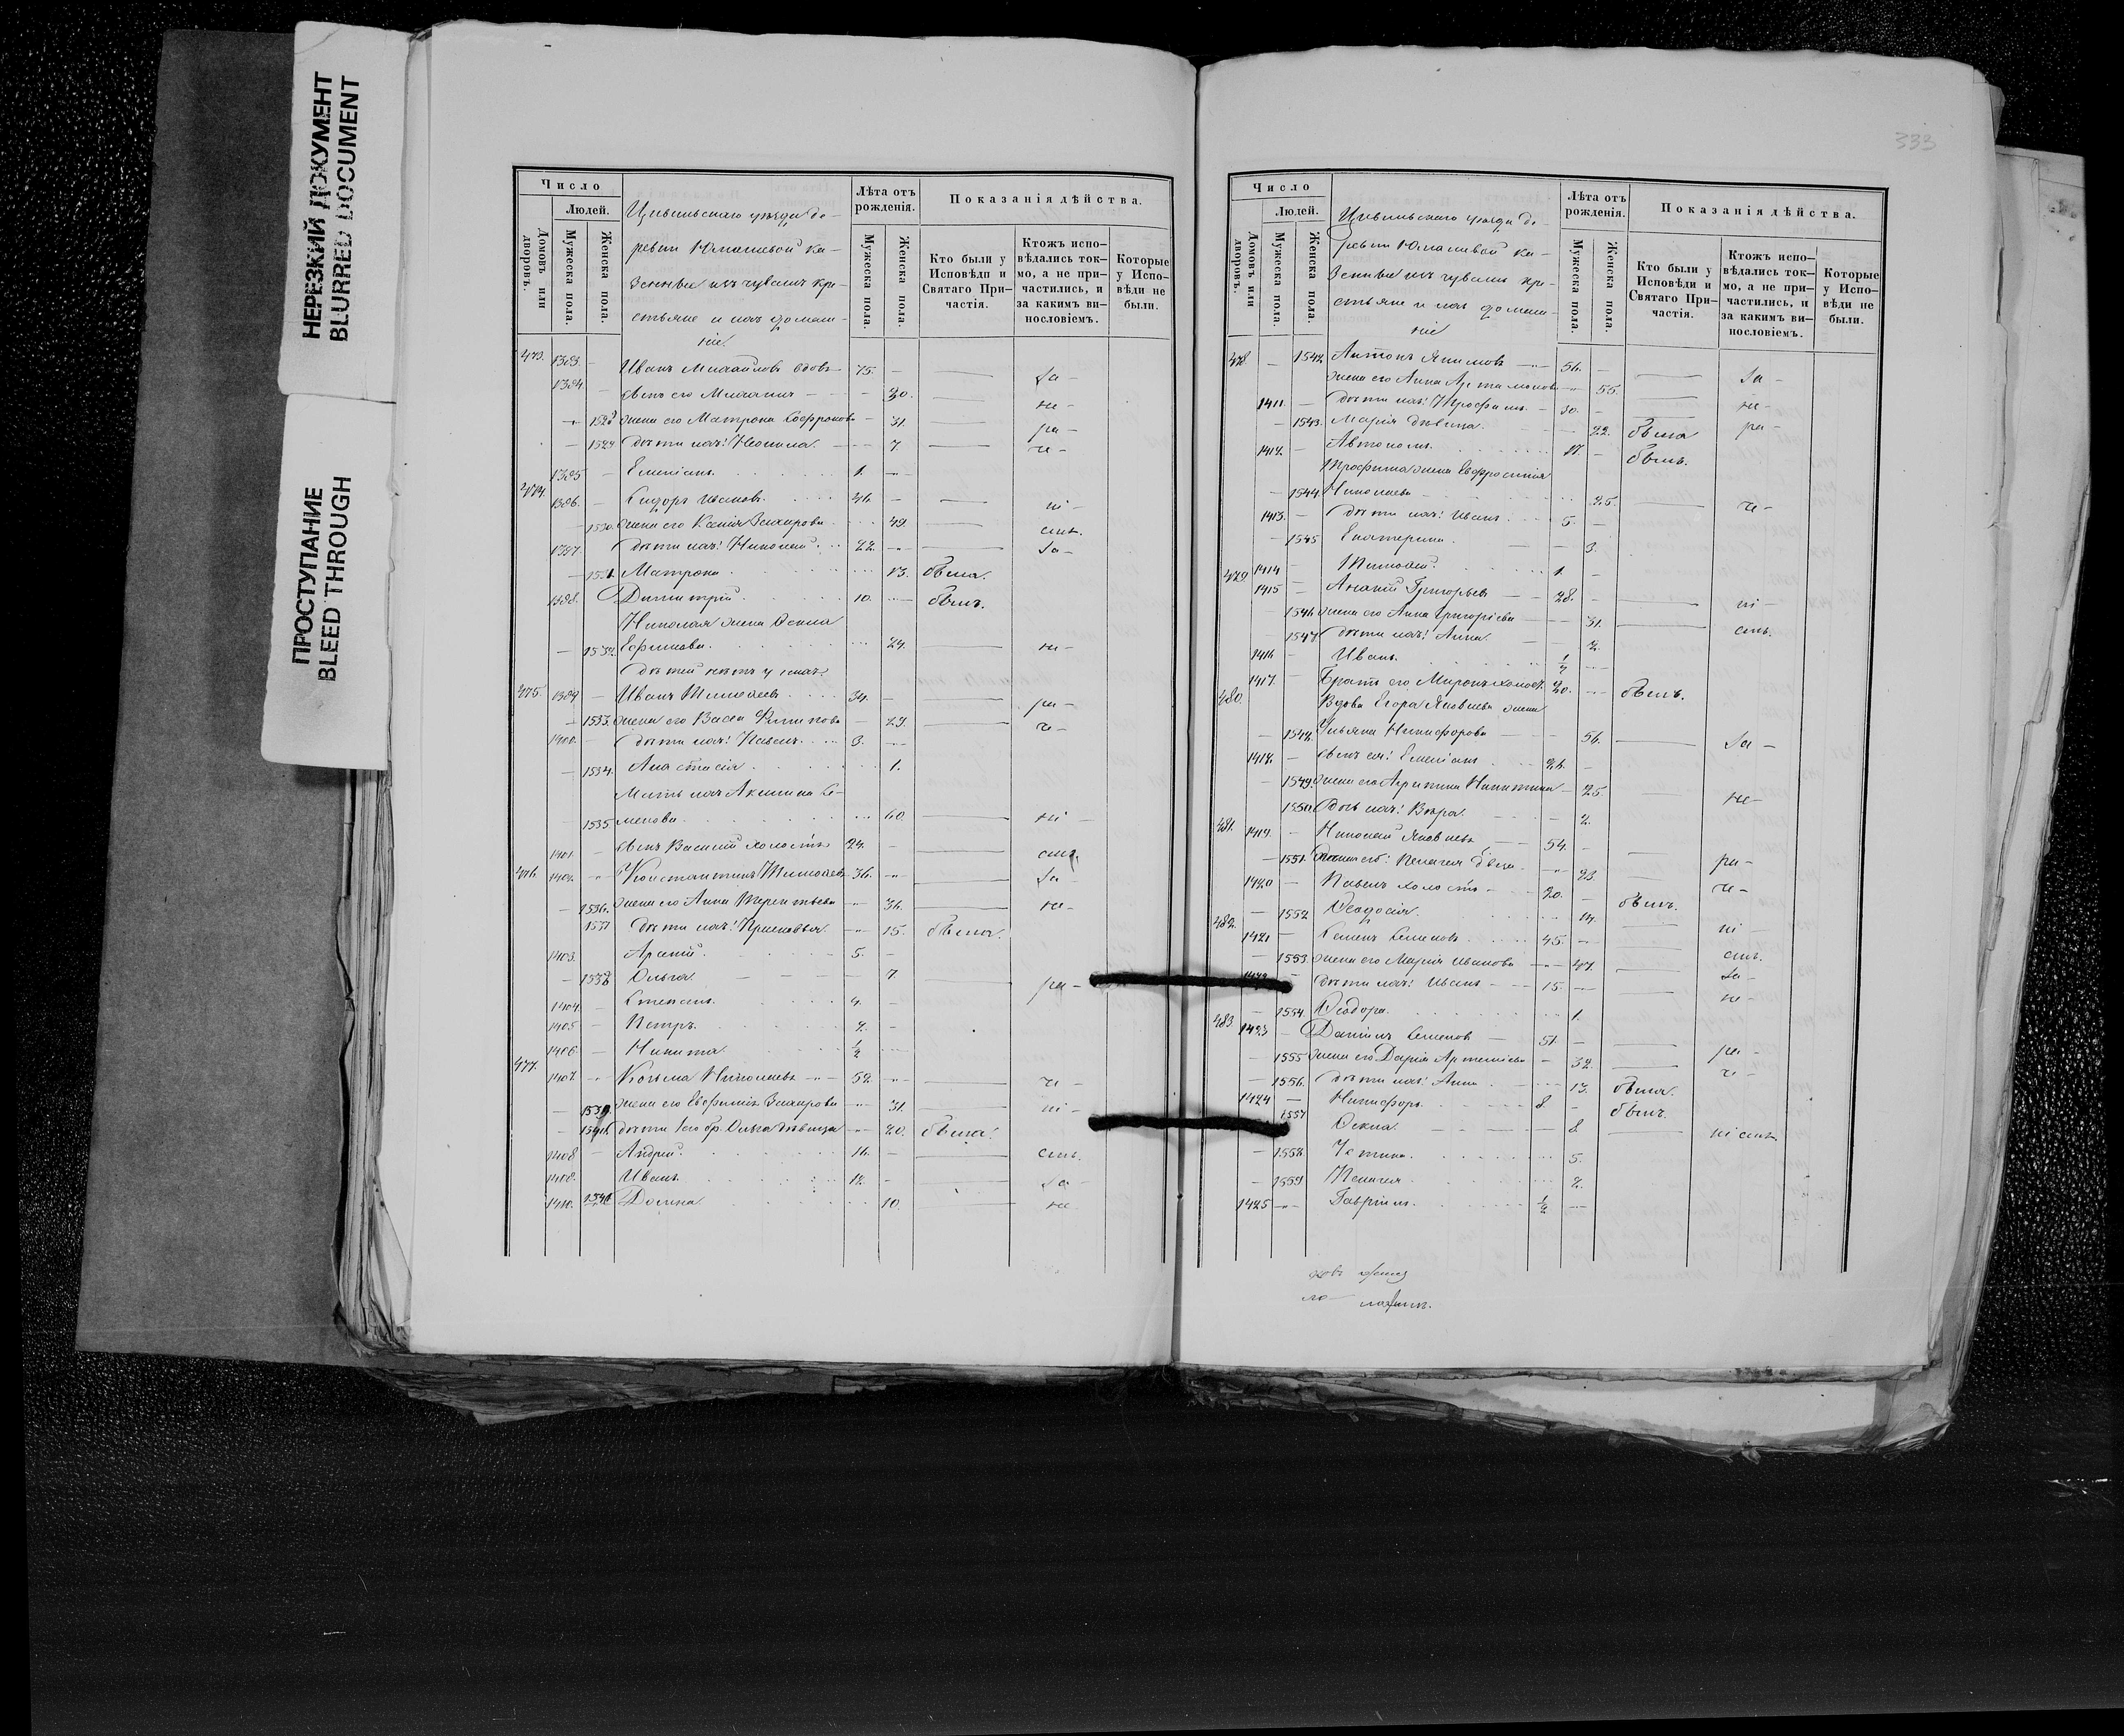 НЕРЕЗКИЙ ДОКУМЕНТ
BLURRED DOCUMENT
ПРОСТУПАНИЕ
BLEED THROUGH
Число
Людей.
Домовъ или дворовъ.
Мужеска пола.
Женска пола.
Цивильскаго уѣзда де-
ревни Юманаевой ка-
зенные изъ чувашъ кре-
стьяне и ихъ домаш-
ніе.
Лѣта отъ рожденія.
Мужеска пола.
Женска пола.
Показанія дѣйства.
Кто были у Исповѣди и Святаго При-частія.
Ктожъ испо-вѣдались ток-мо, а не при-частились, и за какимъ ви-нословіемъ.
Которые у Испо-вѣди не были.
473. 1393. — Иванъ Михайловъ вдовъ — 75. — За —
1394 — Сынъ его Михаилъ — 30. не —
— жена его Матрона — 31. ра —
— 1529 Дѣти ихъ: — 7. че —
1395 — Емеліанъ. 1. —
474. 1396. — Сидоръ Ивановъ. 46. — ні —
— 1530. жена его Ксенія Захарова 49. емъ.
1397. Дѣти ихъ: Николай. 22. — За —
— 1531. Матрона 13. была.
1398. Димитрій. 10. — былъ.
Николая жена Ѳекла
— 1532. Ефимова. 24. — не —
Дѣтей нѣтъ у нихъ.
475. 1399 — Иванъ Тимоѳеевъ. 34. — ра —
— 1533. жена его Васса Филиппова — 29 — че —
1400. — Дѣти ихъ: Павелъ. 3. —
— 1534. Анастасія. 1.
Мать ихъ Акилина Се-
1535. менова. 60. — ні —
1401. — Сынъ Василій холостъ 24. — емъ.
476. 1402. — Константинъ Тимоѳеевъ 36. — За —
— 1536. жена его Анна Терентьева — 36. — не —
1537 Дѣти ихъ: Прасковья. — 15. была.
1403. Арсеній. 5. —
— 1538 Ольга. — 7 — ра —
1404. — Степанъ. 4. —
1405 — Петръ. 2. —
1406. — Никита ½ —
477. 1407. — Козьма Николаевъ — 52. — че —
— 1539. жена его Евфимія Захарова — 31. — ні —
— 1540. Дѣти его бр. Ольга дѣвица — 20. была.
1408 — Андрей. 16. — емъ.
1409. Иванъ 12. — За —
1410. 1541 Домна. 10. — не
333
Число
Людей.
Домовъ или дворовъ.
Мужеска пола.
Женска пола.
Цивильскаго уѣзда де-
ревни Юманаевой ка-
зенные изъ чувашъ кре-
стьяне и ихъ домаш-
ніе
Лѣта отъ рожденія.
Мужеска пола.
Женска пола.
Показанія дѣйства.
Кто были у Исповѣди и Святаго При-частія.
Ктожъ испо-вѣдались ток-мо, а не при-частились, и за какимъ ви-нословіемъ.
Которые у Испо-вѣди не были.
478 — 1542 Антонъ Якимовъ — 56. — За —
жена его Анна Артамонова — 55. — не —
1411. — Дѣти ихъ: Трофимъ — 30. — ра —
— 1543. Марія дѣвица. — 22. была
1412. — Автономъ. 17. — былъ.
Трофима жена Евфросинія
— 1544. Николаева — 25. — че —
1413. — Дѣти ихъ: Иванъ. 5. —
— 1545 Екатерина. — 3.
1414 — Тимоѳей. 1. —
479 1415 — Ананій Григорьевъ — 28. — ні —
— 1546 жена его Анна Григоріева — 31. — емъ.
— 1547 Дѣти ихъ: Анна. — 2.
1416 — Иванъ. —
1417. — Братъ его Миронъ холост. 20. — былъ.
480. Вдова Егора Яковлева жена
— 1548. Ульяна Никифорова — 56. — За —
1418. — Сынъ ея: Емеліанъ 26. —
— 1549. жена его Агрипина Никитина — 25. — не —
1550. Дочь ихъ: Вѣра. — 2.
481. 1419. — Николай Яковлевъ — 54. — ра —
— 1551. Пелагея — 23. — че —
1420 — Павелъ холостъ — 20. — былъ.
— 1552 Ѳеодосія. 14. — ні —
482. 1421 — Семенъ Семеновъ. 45. — емъ.
— 1553. жена его Марія Иванова — 47. — За —
1422 — Дѣти ихъ: Иванъ — 15. — не —
— 1554. Ѳеодора. 1.
483. 1423 — Даніилъ Семеновъ — 51. — ра —
— 1555 жена его Дарія Артеміева — 32. — че —
— 1556. Дѣти ихъ: Анна. 13. была.
1424 — Никифоръ. 8. — былъ.
1557 Ѳекла. — 8 — ні емъ
— 1558. Устина. 5.
— 1559 Пелагея. 2.
1425 — Гавріилъ. ½ —